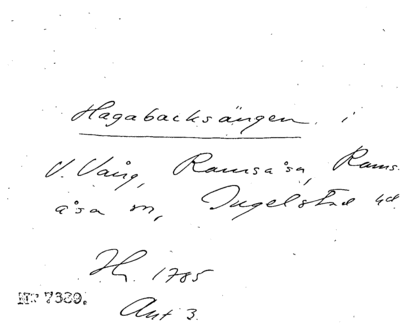 Hagabacksängen i
V. Vång, Ramsåsa, Rams-
åsa sn, Ingelstad hd
Hr. 1785
Nr 7380.
Akt 3.